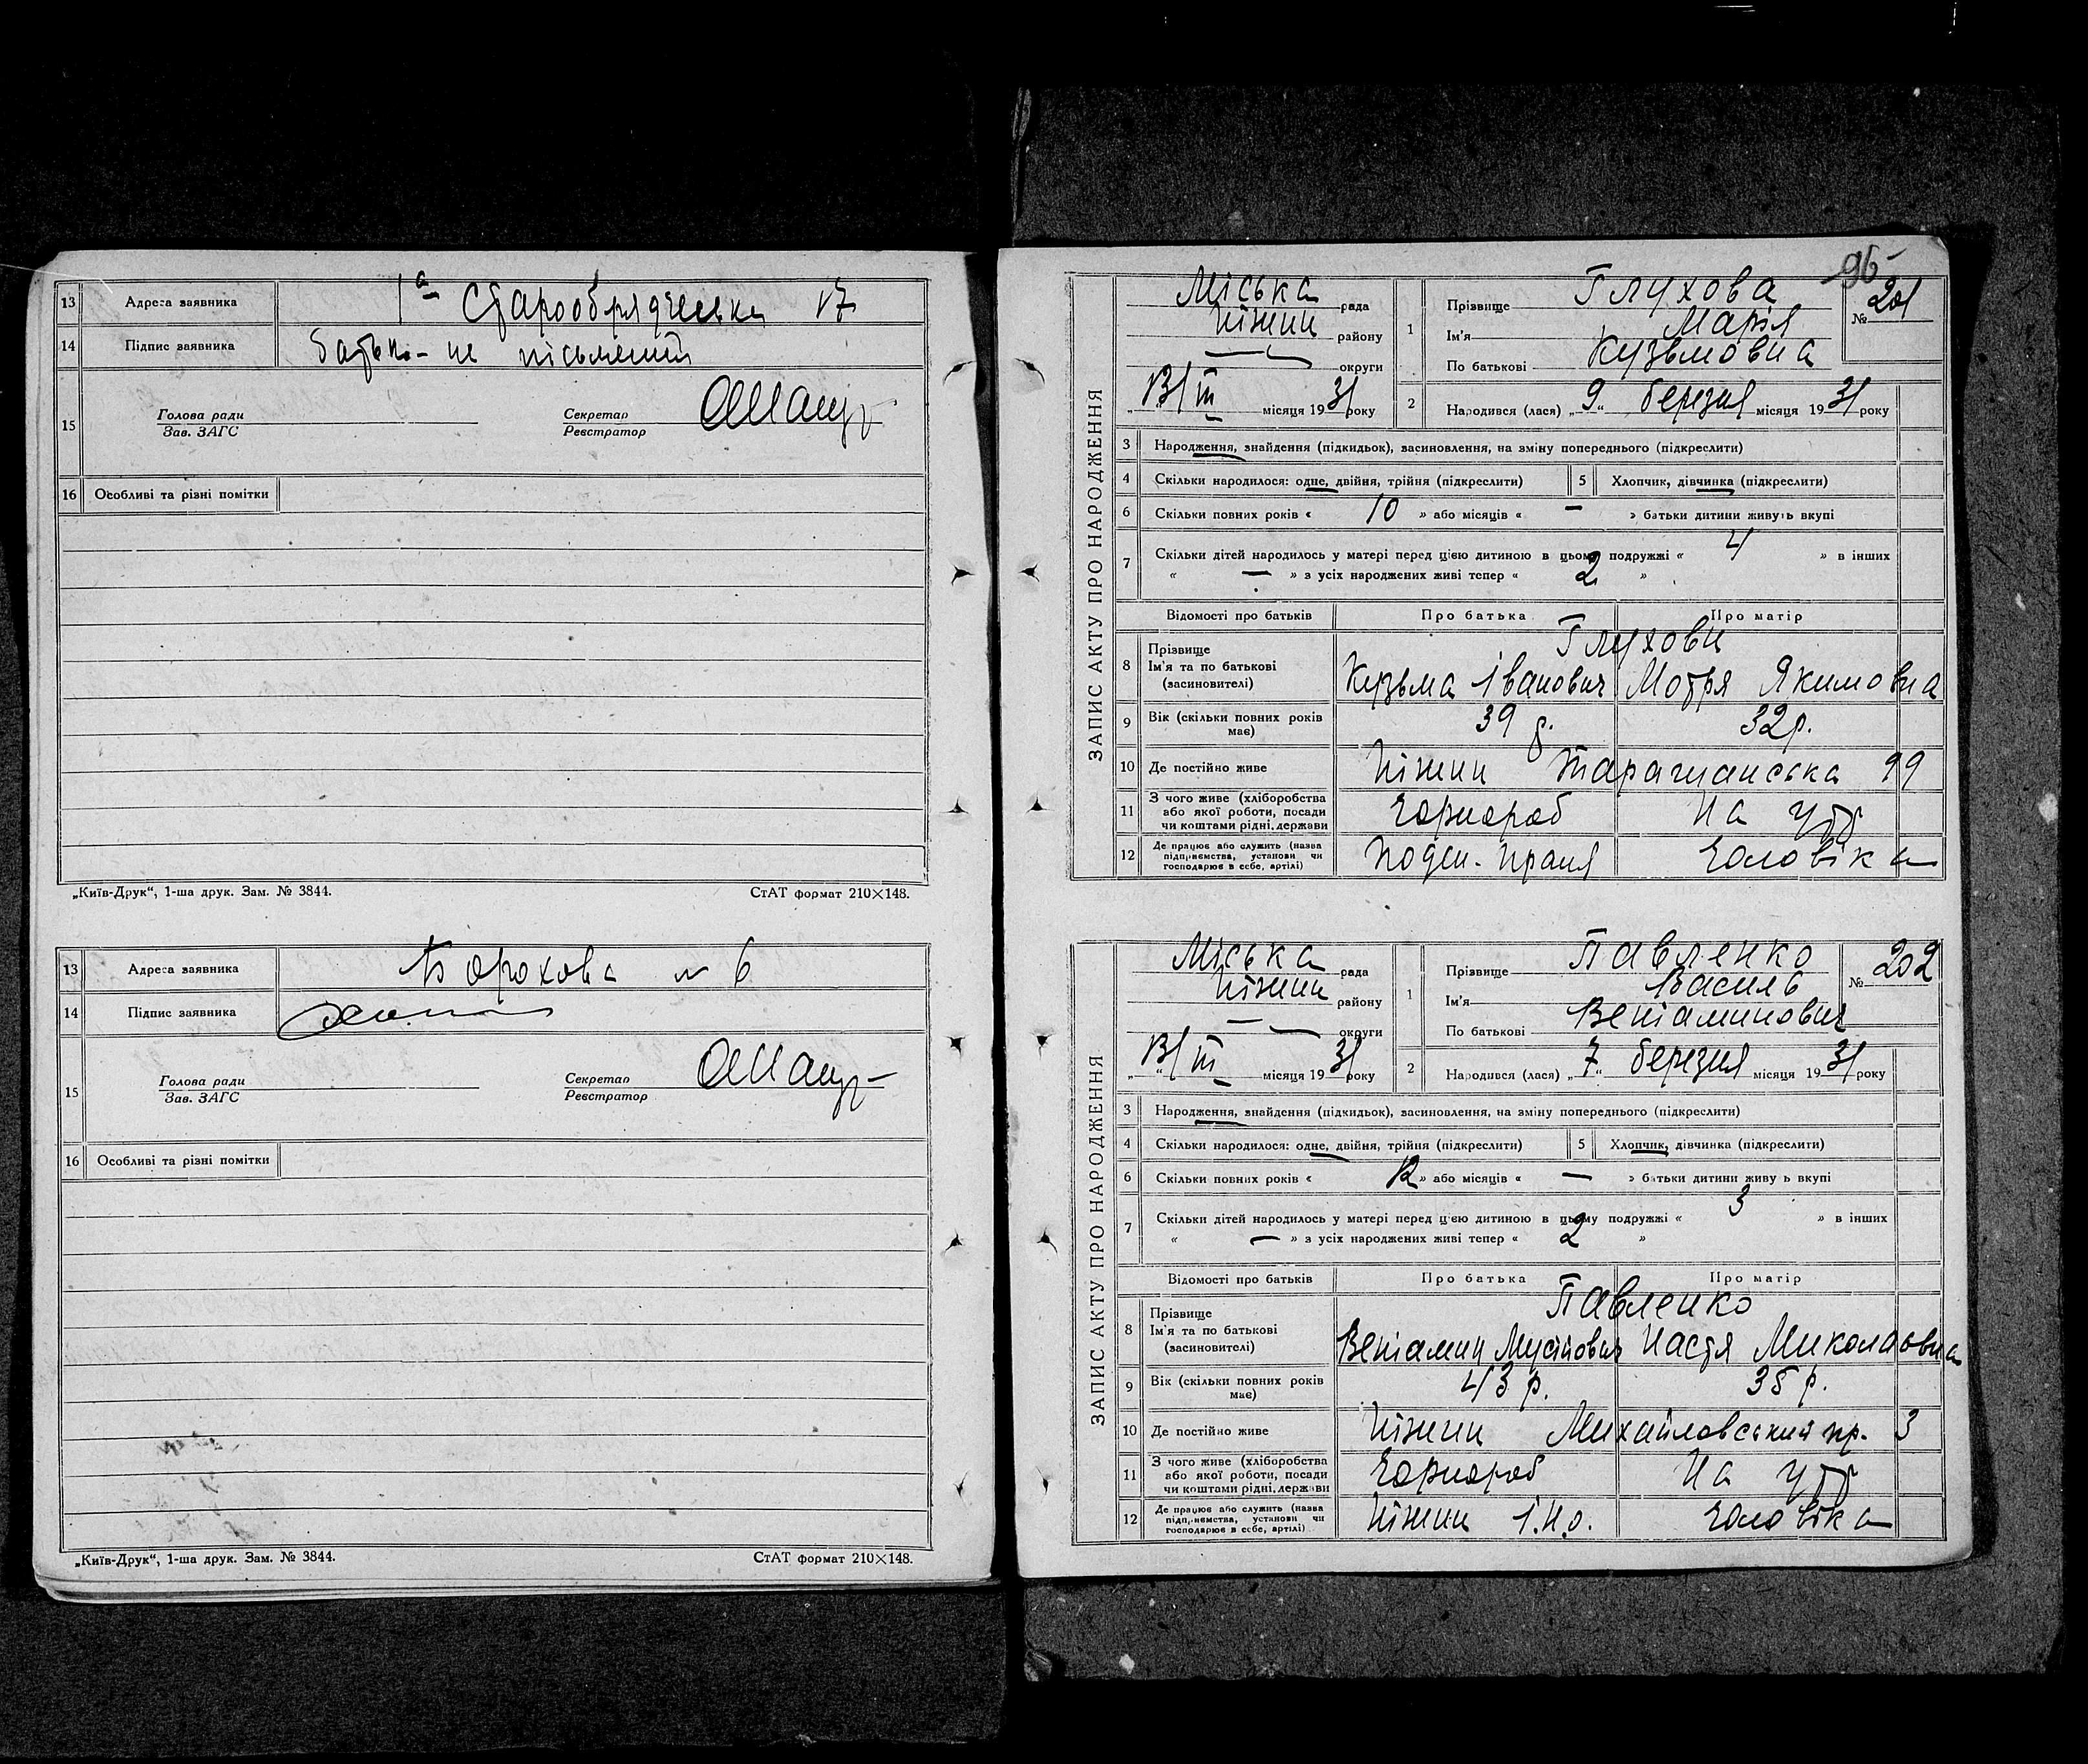 13 Адреса заявника 1а Старообрядческа 17
14 Підпис заявника батько - не письмений
15 Голова ради
Зав. ЗАГС
Секретар
Реєстратор
16 Особливі та різні помітки
„Київ-Друк“, 1-ша друк. Зам. № 3844. СтАТ формат 210×148.
13 Адреса заявника Борохова № 6
14 Підпис заявника
15 Голова ради
Зав. ЗАГС
Секретар
Реєстратор
16 Особливі та різні помітки
„Київ-Друк“, 1-ша друк. Зам. № 3844. СтАТ формат 210×148.
96
ЗАПИС АКТУ ПРО НАРОДЖЕННЯ
Міська рада
Ніжин району
— округи
„13/III місяця 1931 року
1 Прізвище Глухова
Ім'я Марія
По батькові Кузьмовна
№ 201
2 Народився (лася) „9“ березня місяця 1931 року
3 Народження, знайдення (підкидьок), засиновлення, на зміну попереднього (підкреслити)
4 Скільки народилося: одне, двійня, трійня (підкреслити) 5 Хлопчик, дівчинка (підкреслити)
6 Скільки повних років « 10 » або місяців « — » батьки дитини живуть вкупі
7 Скільки дітей народилось у матері перед цією дитиною в цьому подружжі « 4 » в інших
« — » з усіх народжених живі тепер « 2 »
Відомості про батьків Про батька Про матір
8 Прізвище Глухови
Ім'я та по батькові Кузьма Іванович Мотря Якимовна
(засиновителі)
9 Вік (скільки повних років має) 39 р. 32 р.
10 Де постійно живе Ніжин Таращанська 99
11 З чого живе (хліборобства або якої роботи, посади чи коштами рідні, держави Чорнороб На утр
12 Де працює або служить (назва підприємства, установи чи господарює в себе, артілі) Поден. праця чоловіка
ЗАПИС АКТУ ПРО НАРОДЖЕННЯ
Міська рада
Ніжин району
— округи
„13/III місяця 1931 року
1 Прізвище Павленко
Ім'я Василь
По батькові Веніаминович
№ 202
2 Народився (лася) „7“ березня місяця 1931 року
3 Народження, знайдення (підкидьок), засиновлення, на зміну попереднього (підкреслити)
4 Скільки народилося: одне, двійня, трійня (підкреслити) 5 Хлопчик, дівчинка (підкреслити)
6 Скільки повних років « 12 » або місяців « — » батьки дитини живуть вкупі
7 Скільки дітей народилось у матері перед цією дитиною в цьому подружжі « 3 » в інших
« — » з усіх народжених живі тепер « 2 »
Відомості про батьків Про батька Про матір
8 Прізвище Павленко
Ім'я та по батькові Веніамин Мусійович Настя Миколаовна
(засиновителі)
9 Вік (скільки повних років має) 43 р. 35 р.
10 Де постійно живе Ніжин Михайловський пр. 3
11 З чого живе (хліборобства або якої роботи, посади чи коштами рідні, держави Чорнороб На утр
12 Де працює або служить (назва підприємства, установи чи господарює в себе, артілі) Ніжин І.Н.О. чоловіка